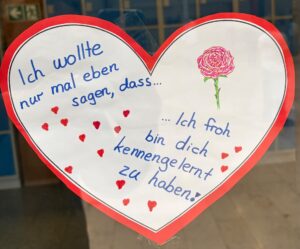 Ich wollte
nur mal eben
sagen, dass...
... Ich froh
bin dich
kennengelernt
zu haben!